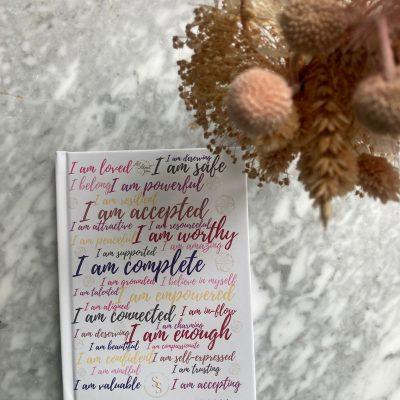 I am deserving
I am loved I am safe
I belong I am powerful
I am resilient
I am accepted
I am attractive I am resourceful
I am peaceful I am worthy
I am amazing
I am supported
I am complete
I am grounded I believe in myself
I am talented I am empowered
I am aligned
I am connected I am in-flow
I am charming
I am deserving I am enough
I am beautiful I am compassionate
I am confident I am self-expressed
I am mindful I am trusting
I am valuable I am accepting